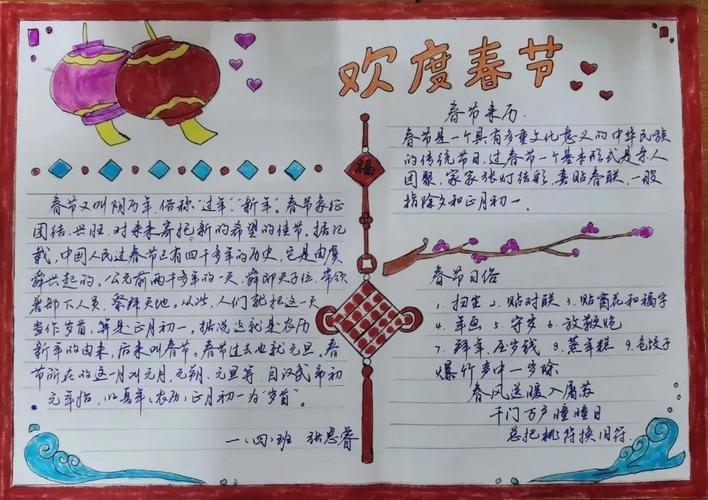 欢度春节
春节又叫阴历年,俗称"过年""新年"。春节象征
团结、兴旺,对未来寄托新的希望的佳节。据记
载,中国人民过春节已有四千多年的历史,它是由虞
舜兴起的,公元前两千多年的一天,舜即天子位,带领
着部下人员,祭拜天地。从此,人们就把这一天
当作岁首,算是正月初一。据说这就是农历
新年的由来,后来叫春节。春节过去也就元旦。春
节所在的这一月叫元月,元朔,元旦等,自汉武帝初
元年始,以县年(农历)正月初一为"岁首"。
一、(四)班 张思睿
福
春节来历.
春节是一个具有多重文化意义的中华民族
的传统节日,过春节一个基本形式是亲人
团聚,家家张灯结彩,喜贴春联,一般
指除夕和正月初一.
春节习俗
1. 扫尘 2. 贴对联 3. 贴窗花和福字
4. 年画 5. 守岁 6. 放鞭炮
7. 拜年 压岁钱 8. 蒸年糕 9. 包饺子
爆竹声中一岁除
春风送暖入屠苏
千门万户曈曈日
总把桃符换旧符.